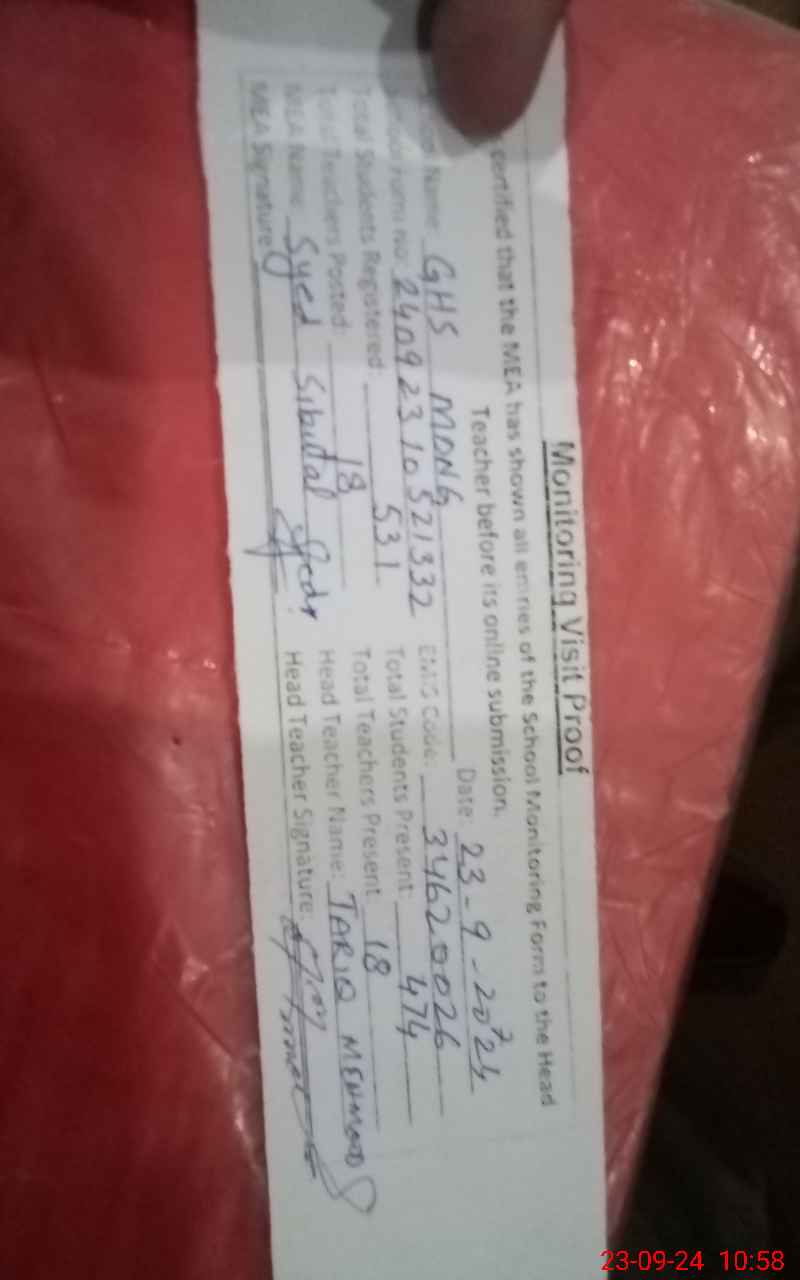 Monitoring Visit Proof
certified that the MEA has shown all entries of the School Monitoring Form to the Head
Teacher before its online submission.
Date: 23-9-2024
Name: GHS MONG
EMIS Code: 34620026
Form No: 24092310521332
Total Students Present: 474
Total Students Registered: 531
Total Teachers Present: 18
Total Teachers Posted: 18
Head Teacher Name: TARIQ MEHMOOD
MEA Name: Syed
Head Teacher Signature:
MEA Signature
23-09-24 10:58